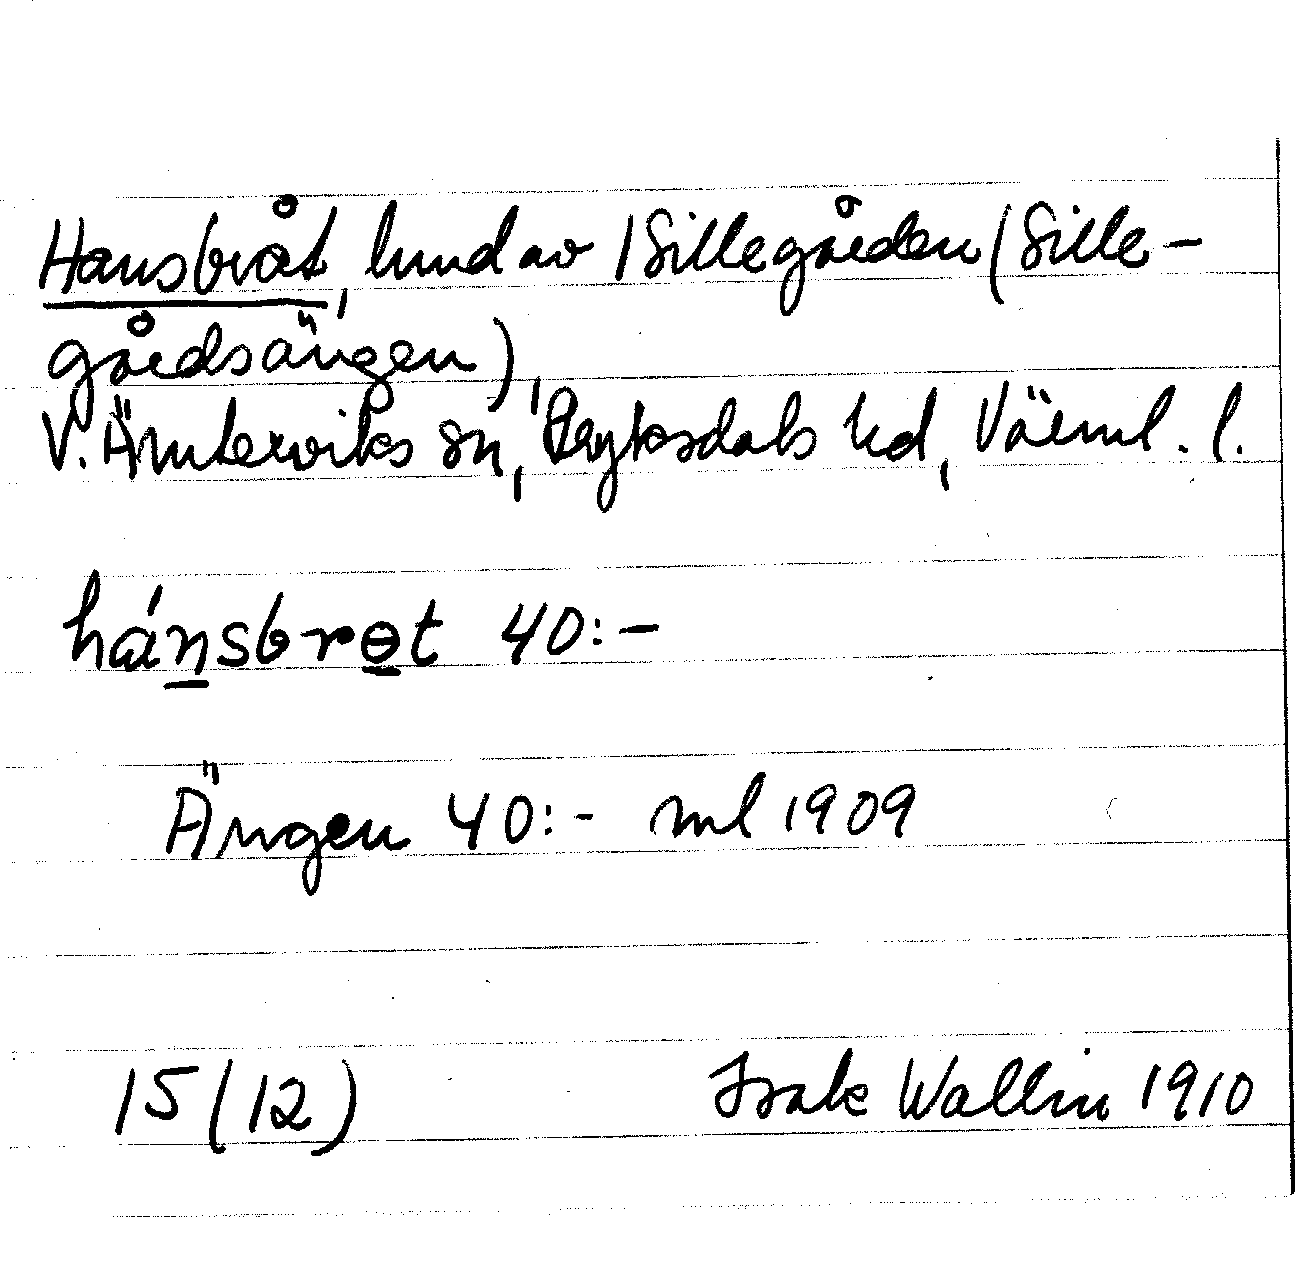 Hansbråt, hmd av 1 Sillegården (Sille-
gårdsängen),
V. Ämterviks sn, Fryksdals hd, Värml. l.
hánsbrɵt 40:-
Ängen 40:- ml 1909
15(12) Isak Wallin 1910